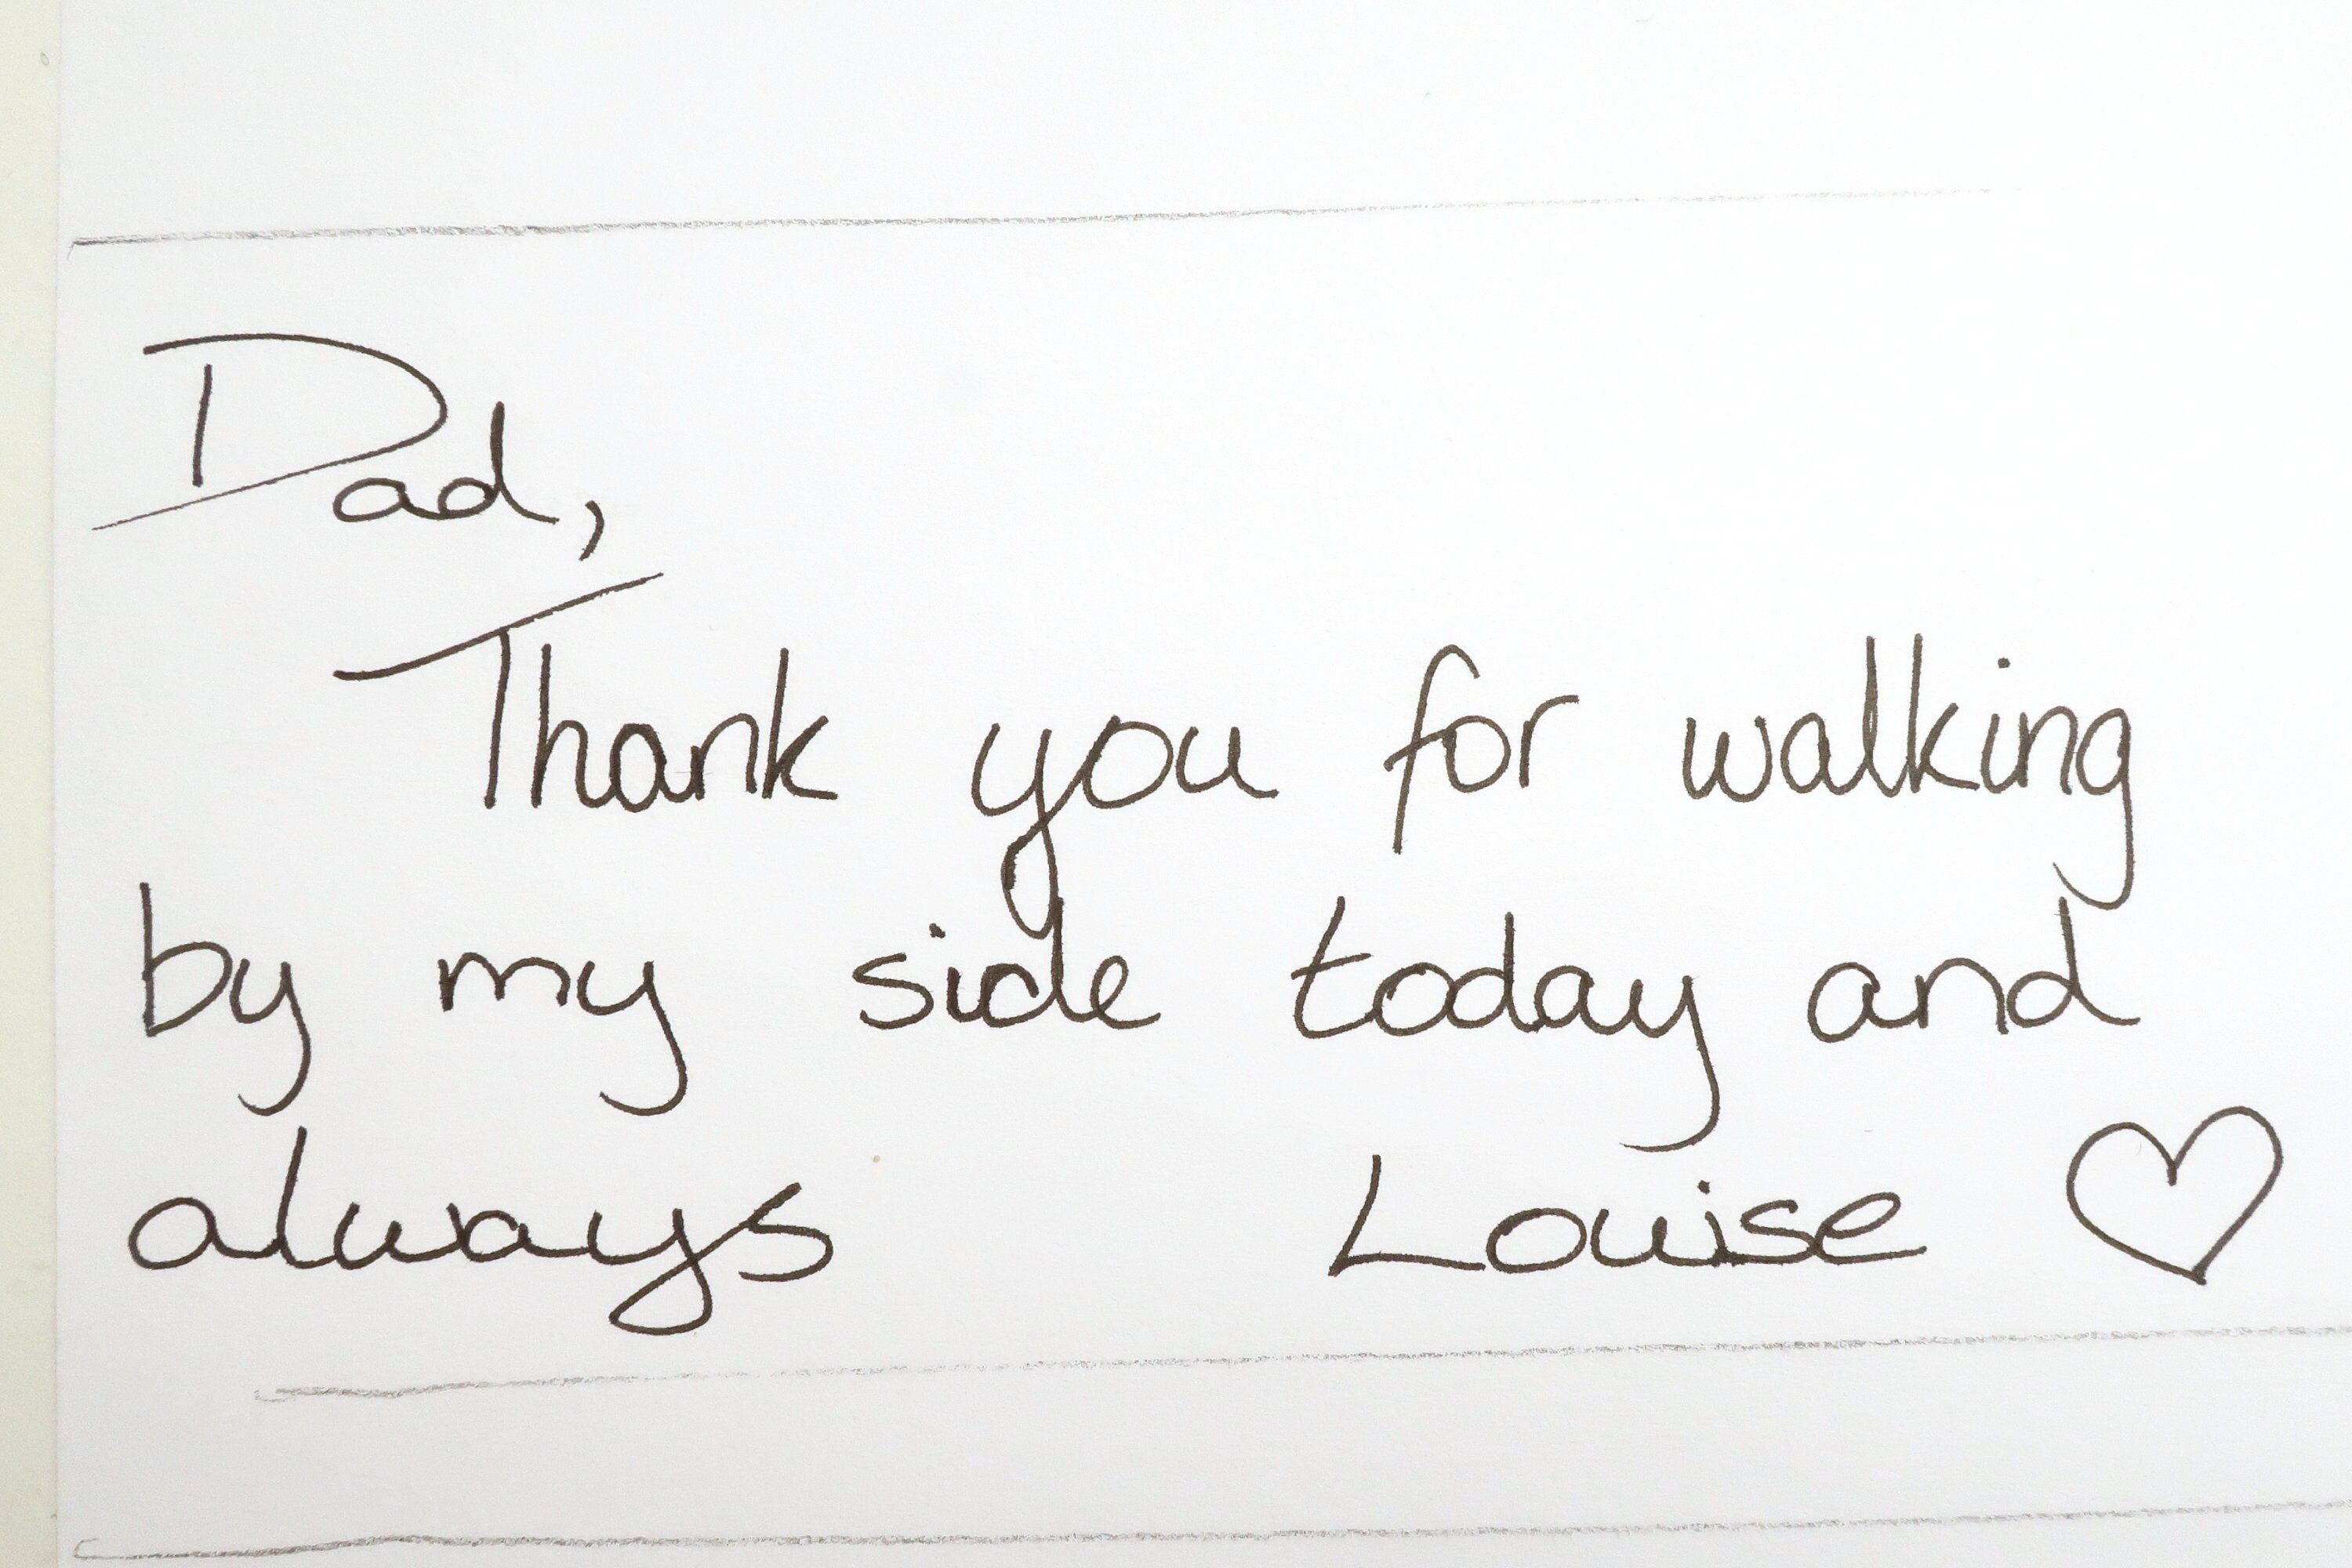 Dad,
Thank you for walking
by my side today and
always Louise ♡